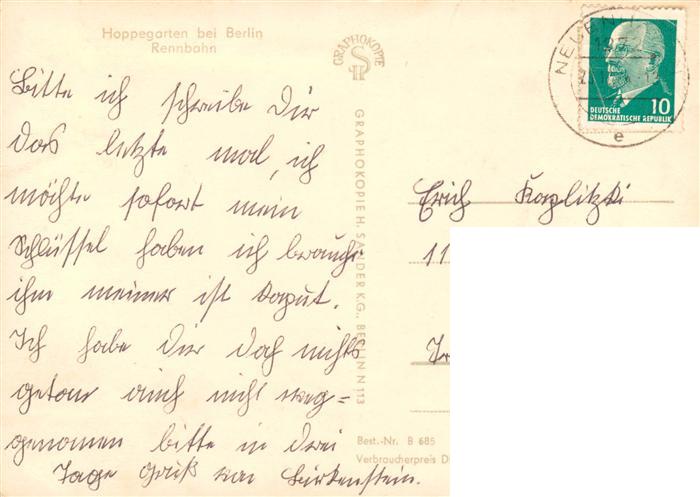 Hoppegarten bei Berlin
Rennbahn
Bitte ich schreibe Dir
das letzte mal, ich
möchte sofort mein
Schlüssel haben ich brauche
ihn meiner ist kaput.
Ich habe Dir doch nichts
getan auch nicht weg=
genomen bitte in drei
Tage Gruß von Birkenstein.
GRAPHOKOPIE
GRAPHOKOPIE H. SANDER K.G., BERLIN N 113
Best.-Nr. B 685
Verbraucherpreis
10
DEUTSCHE
DEMOKRATISCHE REPUBLIK
e
Erich Kaplitzki
11